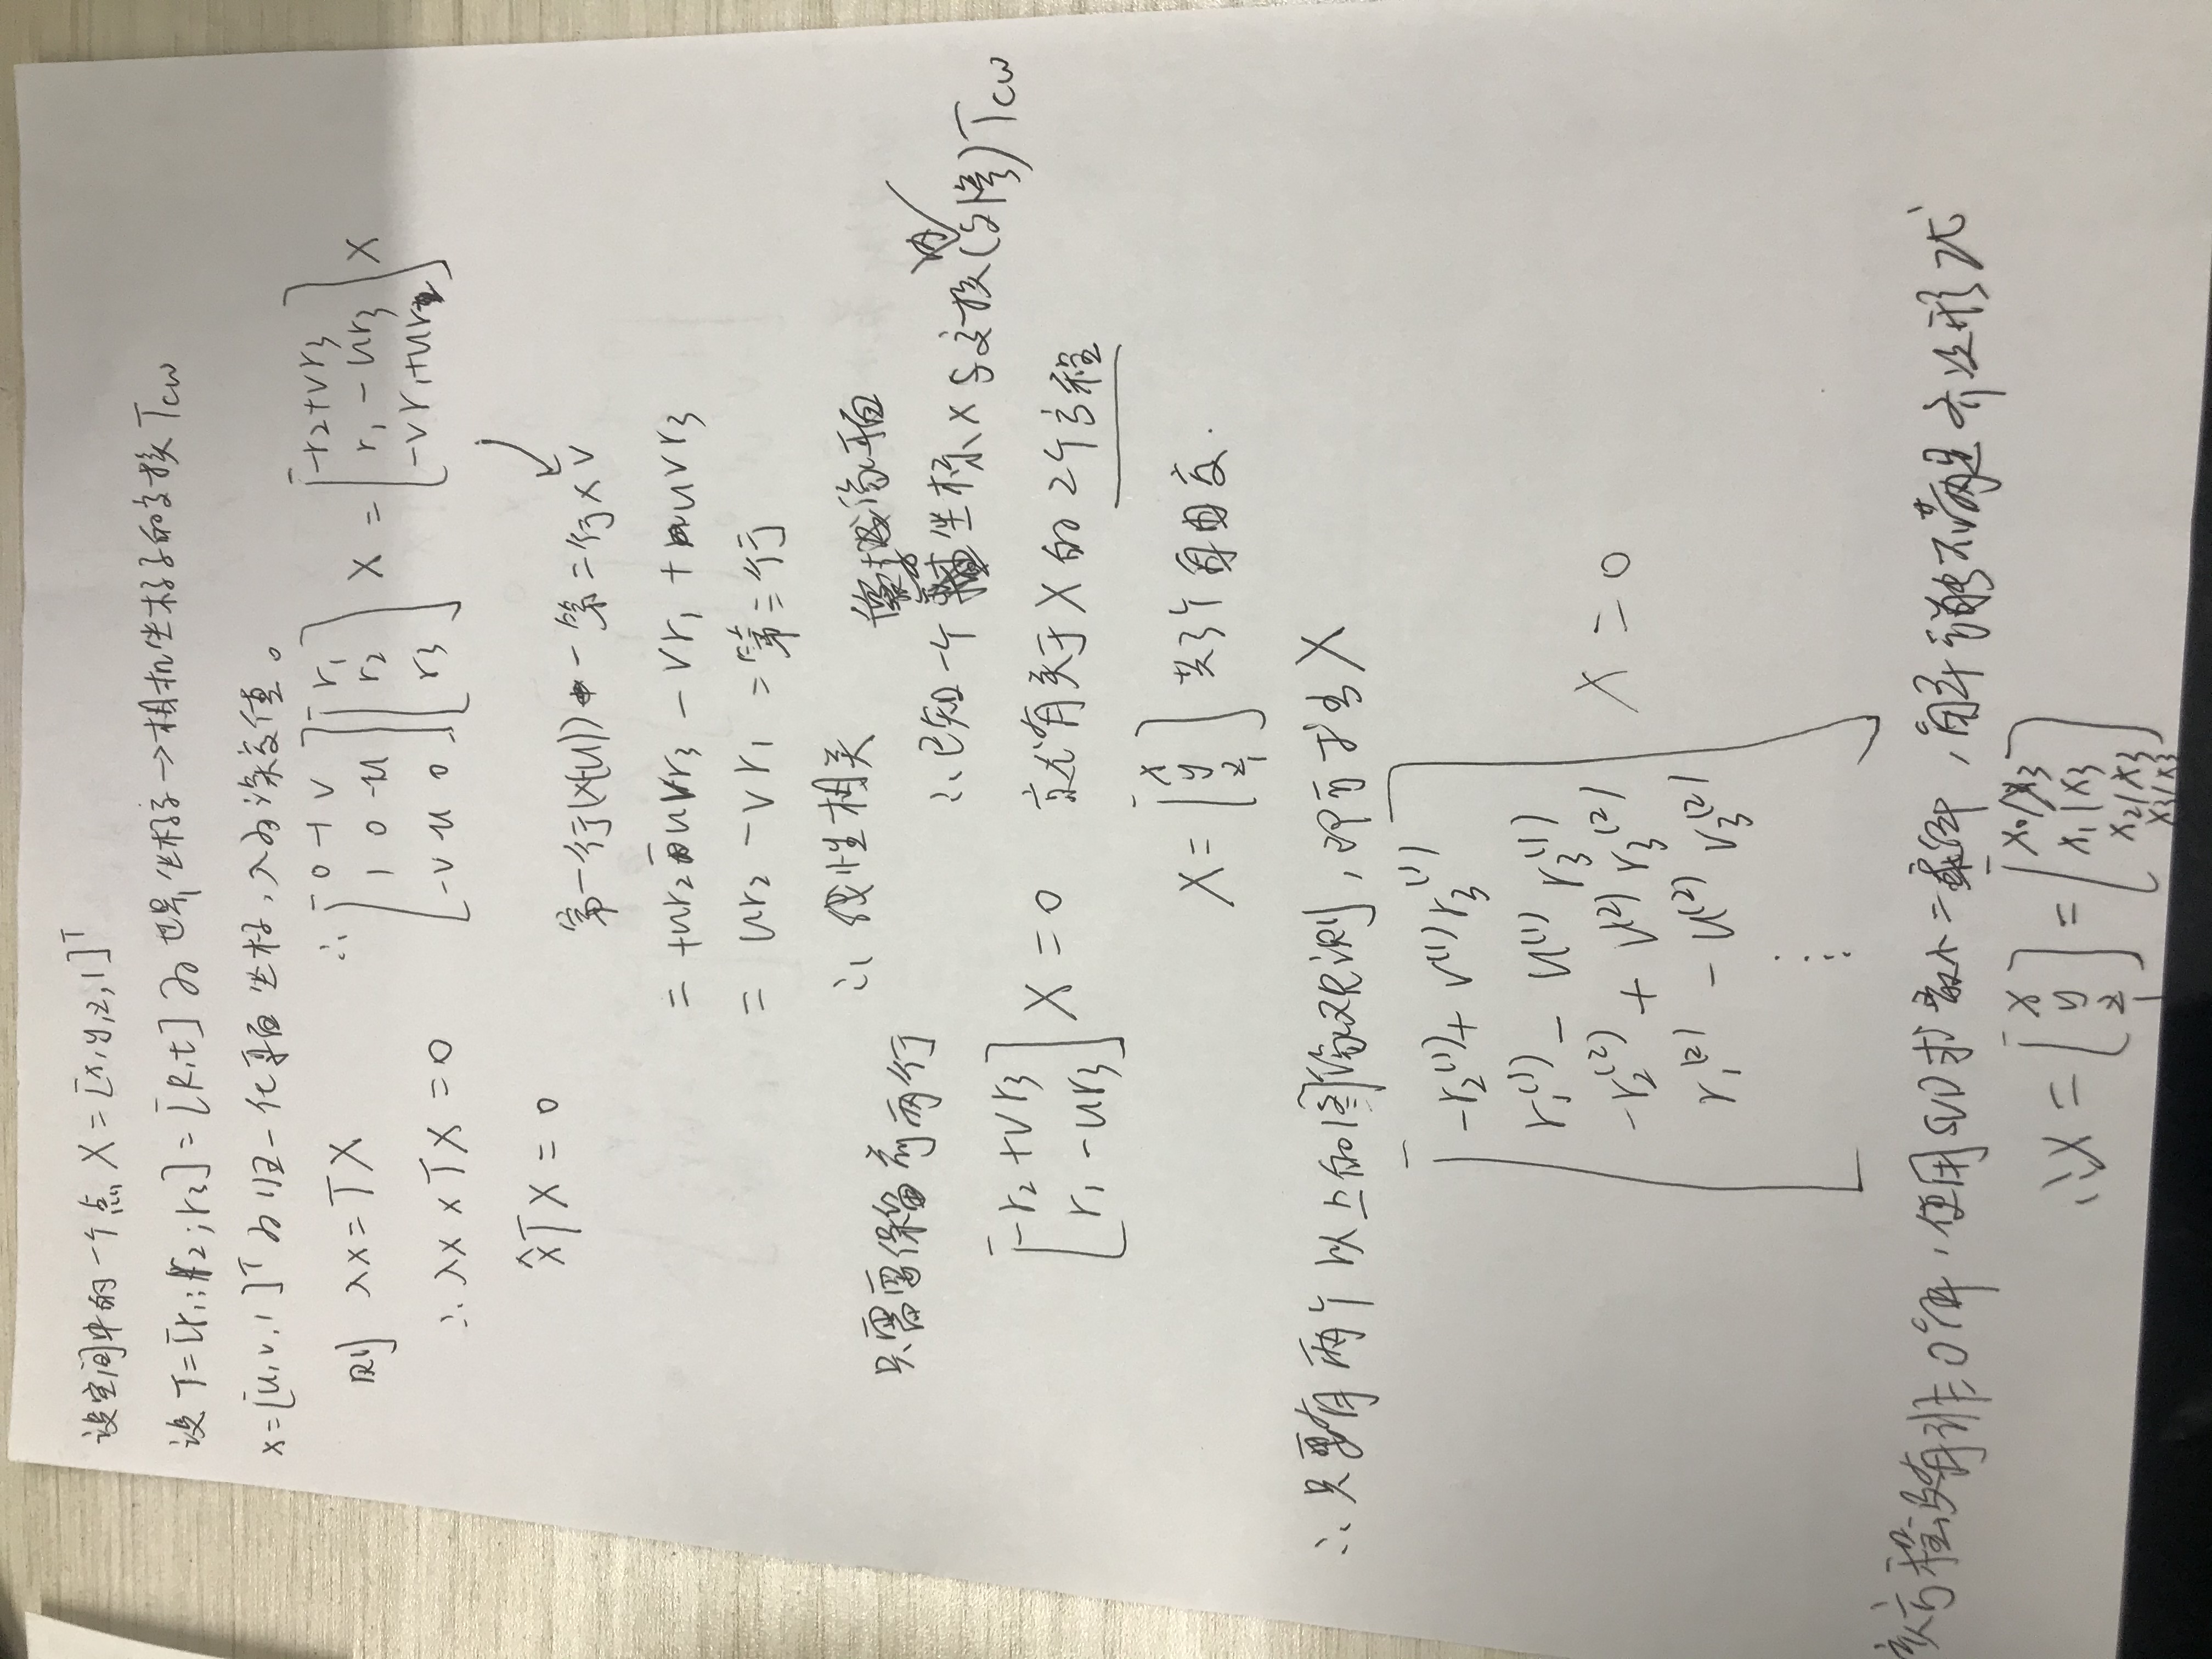 设空间中的一个点 X = [x, y, z, 1]^T
设 T = [r₁; r₂; r₃] = [R, t] 为 世界坐标系 → 相机坐标系的变换 Tcw
x = [u, v, 1]^T 为归一化平面坐标, λ为深度值。
则 λx = TX
∴ λx × TX = 0
x̂TX = 0
∴ [0 -1 v; 1 0 -u; -v u 0] [r₁; r₂; r₃] X = [-r₂+vr₃; r₁-ur₃; -vr₁+ur₂] X
第一行(×(-u)) - 第二行×v
= +ur₂ - uvr₃ - vr₁ + uvr₃
= ur₂ - vr₁ = 第三行
∴ 线性相关
只需要保留前两行
[-r₂+vr₃; r₁-ur₃] X = 0
∴ 已知一个 像平面 坐标 x 与变换 Tcw
就有关于 X 的 2个方程
X = [x; y; z; 1] 共3个自由度.
∴ 只要有两个以上的图像观测, 即可求出 X
[-r₂⁽¹⁾ + v⁽¹⁾ r₃⁽¹⁾
r₁⁽¹⁾ - u⁽¹⁾ r₃⁽¹⁾
-r₂⁽²⁾ + v⁽²⁾ r₃⁽²⁾
r₁⁽²⁾ - u⁽²⁾ r₃⁽²⁾
⋮] X = 0
该方程没有非0解, 使用SVD求最小二乘解, 解 不满足齐次形式
∴ X = [x; y; z; 1] = [x₀/x₃; x₁/x₃; x₂/x₃; x₃/x₃]